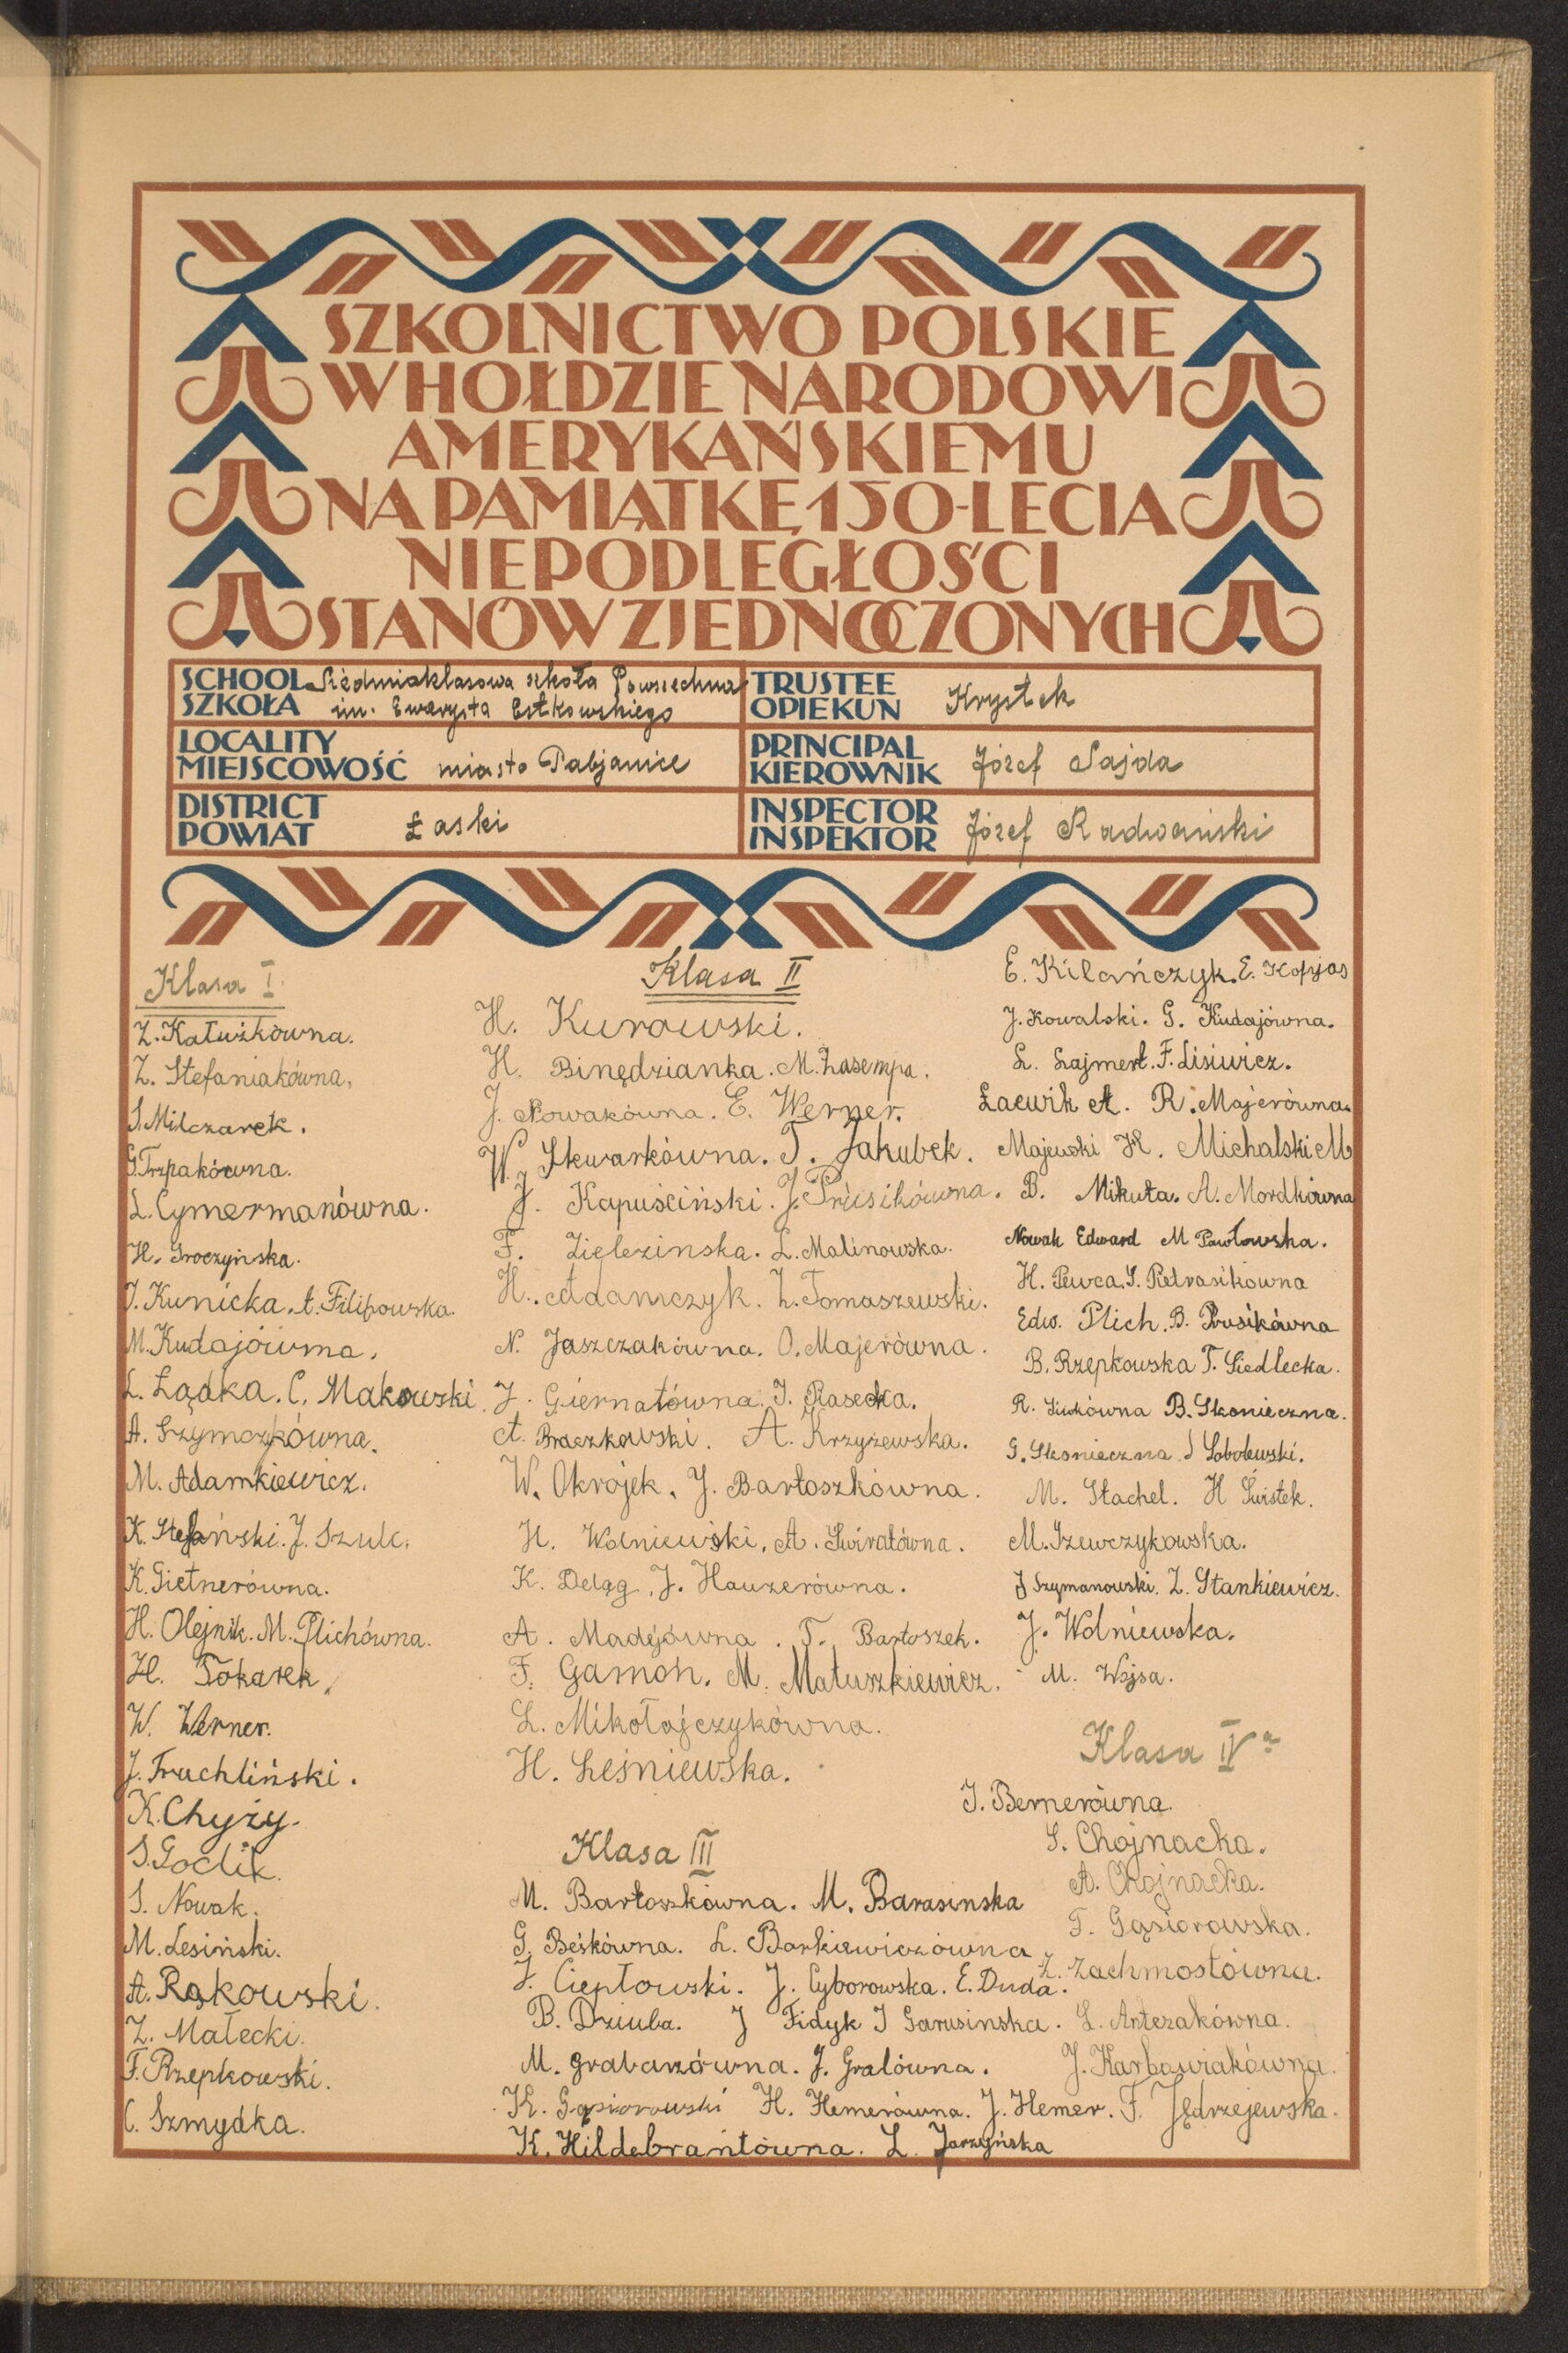 SZKOLNICTWO POLSKIE
W HOŁDZIE NARODOWI
AMERYKAŃSKIEMU
NA PAMIĄTKĘ 150-LECIA
NIEPODLEGŁOŚCI
STANÓW ZJEDNOCZONYCH
SCHOOL SZKOŁA Siedmioklasowa szkoła Powszechna
im. Ewarysta Estkowskiego
TRUSTEE OPIEKUN Krystek
LOCALITY MIEJSCOWOŚĆ miasto Pabjanice
PRINCIPAL KIEROWNIK Józef Sajda
DISTRICT POWIAT Łaski
INSPECTOR INSPEKTOR Józef Radwański
Klasa I.
Z. Kałużkówna.
Z. Stefaniakówna.
S. Milczarek.
G. Trzpakówna.
L. Cymermanówna.
H. Groczyńska.
J. Kunicka. A. Filipowska.
M. Kudajówma.
L. Łądka. C. Makowski.
A. Szymczykówna.
M. Adamkiewicz.
K. Stefański. J. Szulc.
K. Gietnerówna.
H. Olejnik. M. Plichówna.
H. Tokarek.
W. Werner.
J. Truchliński.
K. Chyży.
S. Goclik.
S. Nowak.
M. Lesiński.
A. Rąkowski.
Z. Małecki.
F. Rzepkowski.
C. Szmydka.
Klasa II
H. Kurowski.
H. Binędzianka. M. Zasempa.
J. Nowakówna. E. Werner.
W. Skwarkówna. T. Jakubek.
J. Kapuściński. J. Prusikówna.
F. Zielezinska. L. Malinowska.
H. Adamczyk. Z. Tomaszewski.
N. Jaszczakówna. O. Majerówna.
J. Giernatówna. J. Rasecka.
A. Braczkowski. A. Krzyżewska.
W. Okrojek. J. Bartoszkówna.
H. Wolniewski. A. Swirałówna.
K. Deląg. J. Hauzerówna.
A. Madejówna. T. Bartoszek.
F. Gamoń. M. Matuszkiewicz.
L. Mikołajczykówna.
H. Leśniewska.
Klasa III
M. Bartoszkówna. M. Barasinska
G. Beśkówna. L. Borkiewiczówna
J. Ciepłowski. J. Cyborowska. E. Duda.
B. Dziuba. J Fidyk J Garusinska.
M. Grabarzówna. J. Gralówna.
K. Gąsiorowski H. Hemerówna. J. Hemer.
K. Hildebrantówna. L. Jarzyńska
E. Kilańczyk. E. Kopjas
J. Kowalski. G. Kudajówna.
L. Lajmert. F. Lisiwicz.
Łaewik A. R. Majerówna.
Majewski H. Michalski M
B. Mikuta. A. Mordkówna
Nowak Edward M Pawłowska.
H. Pewca. S. Pietrasikówna
Edw. Plich. B. Prusikówna
B. Rzepkowska T. Siedlecka.
R. Siwkówna B. Skonieczna.
G. Skonieczna J Sobolewski.
M. Stachel. H Świstek.
M. Szewczykowska.
J Szymanowski. Z. Stankiewicz.
J. Wolniewska.
M. Wojsa.
Klasa IV a
J. Bernerówna.
S. Chojnacka.
A. Chojnacka.
T. Gąsiorowska.
Z. Zachmostówna.
L. Antczakówna.
J. Karbowiakówna.
F. Jędrzejewska.